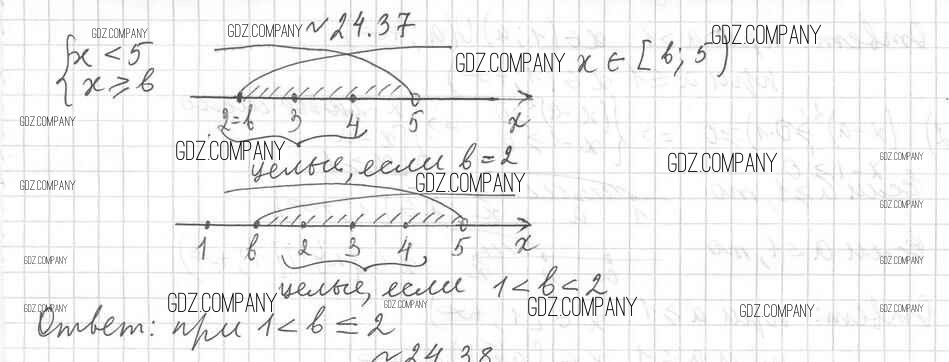 GDZ.COMPANY
GDZ.COMPANY
N 24.37
GDZ.COMPANY
{ x < 5
x ⩾ b
GDZ.COMPANY
x ∈ [b; 5)
2=b 3 4 5 x
GDZ.COMPANY
GDZ.COMPANY
GDZ.COMPANY
GDZ.COMPANY
целые, если b = 2
GDZ.COMPANY
GDZ.COMPANY
GDZ.COMPANY
1 b 2 3 4 5 x
GDZ.COMPANY
GDZ.COMPANY
GDZ.COMPANY
целые, если 1 < b < 2
GDZ.COMPANY
GDZ.COMPANY
GDZ.COMPANY
GDZ.COMPANY
GDZ.COMPANY
GDZ.COMPANY
Ответ: при 1 < b ≤ 2
N 24.38